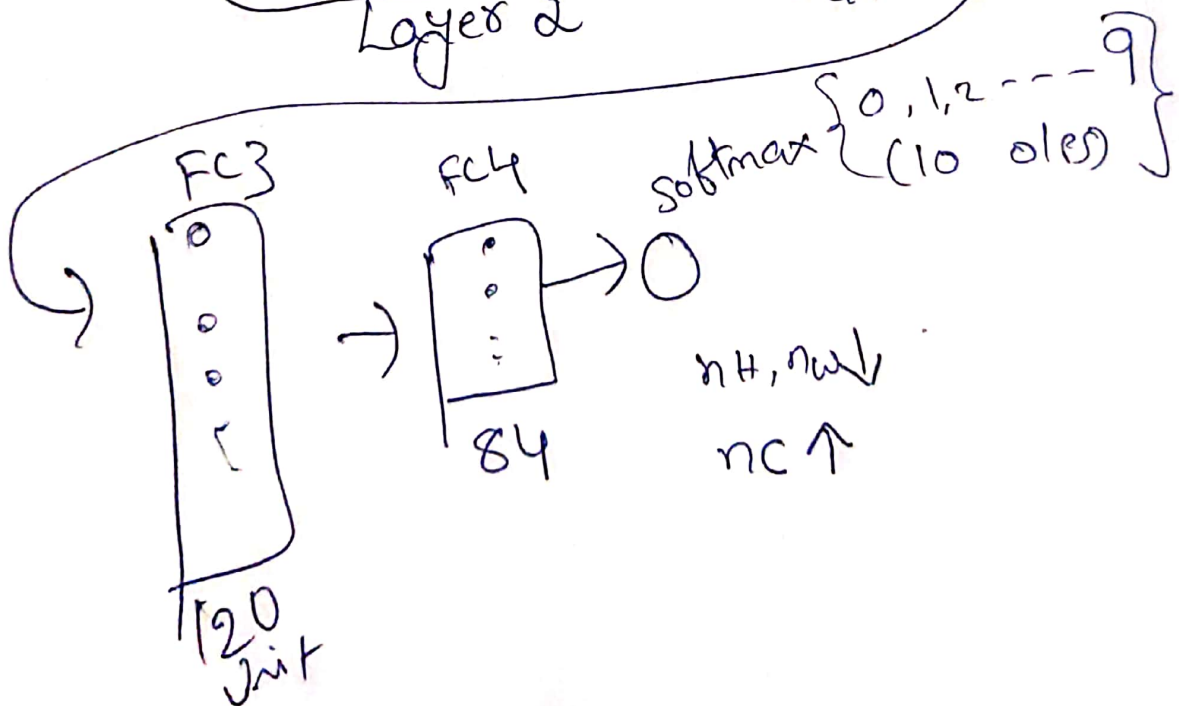 Layer 2
FC3
FC4
softmax {0, 1, 2 ---- 9}
(10 o/es)
nH, nw↓
nC ↑
84
120
Unit